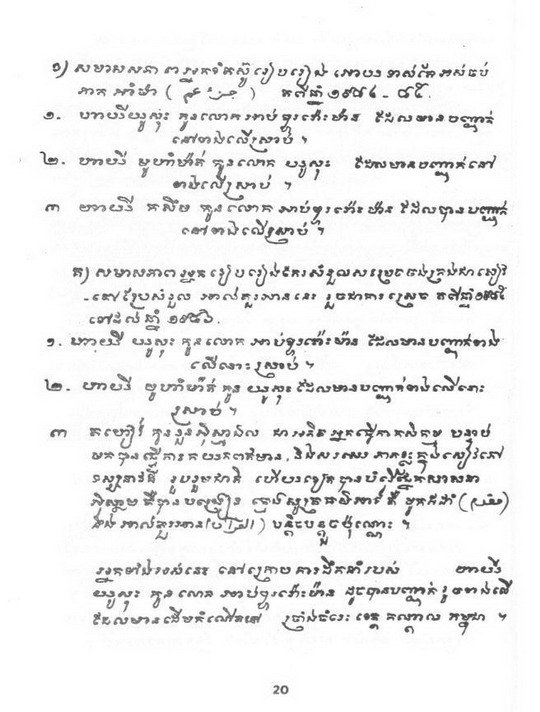 ១) សមាសសភាពអ្នករិតស្ល៊ូរៀបរៀង អោយទាស់តែអស់ចប់
ភាគ អាំម៉ា ( جزء عم ) តពីឆ្នាំ ១៩៨៤ - ៨៥.
១. ហាយីយូស្សុះ កូនលោក អាប់ឌូរ៉ោះម៉ាន ដែលមានបញ្ជាក់
នៅខាងលើស្រាប់ ។
២. ហាយី មូហាំម៉ាត់ កូនលោក យូសុះ ដែលមានបញ្ជាក់នៅ
ខាងលើស្រាប់ ។
៣ ហាយី កសឹម កូនលោក អាប់ឌូរ៉ោះម៉ាន ដែលបានបញ្ជាក់
នៅខាងលើស្រាប់ ។
គ) សមាសភាពអ្នករៀបរៀងកែសំរួលសម្រេចចងក្រងជាសៀវ
-ភៅប្រែសំរួល អាល់គួរអាននេះ រួចជាការស្រេច តពីឆ្នាំ១៩៨៥
ទៅដល់ឆ្នាំ ១៩៨៦.
១. ហាយី យូសុះ កូនលោក អាប់ឌូរ៉ោះម៉ាន ដែលមានបញ្ជាក់ខាង
លើណោះស្រាប់ ។
២. ហាយី មូហាំម៉ាត់ កូន យូសុះ ដែលមានបញ្ជាក់ខាងលើនោះ
ស្រាប់ ។
៣ កូន ជាអតីត អ្នកធ្វើការកសិកម្ម បន្ទាប់
មកបានធ្វើការ និងសរសេរ ក្នុងសៀវភៅ
ទស្សនាវដ្តី រូបរួមជាតិ ហើយទៀតបាន សាសនា
អ៊ីស្លាម
និង អាល់គួរអាន (القرآن) បន្តិចបន្តួចប៉ុណ្ណោះ ។
អ្នកទាំងអស់នេះ នៅក្រោមការដឹកនាំរបស់ ហាយី
យូសុះ កូនលោក អាប់ឌូរ៉ោះម៉ាន ដូចបានបញ្ជាក់រួចខាងលើ
ដែលមានដើមកំណើតនៅ ច្រាំងចំរេះ ខេត្ត កណ្តាល កម្ពុជា ។
20